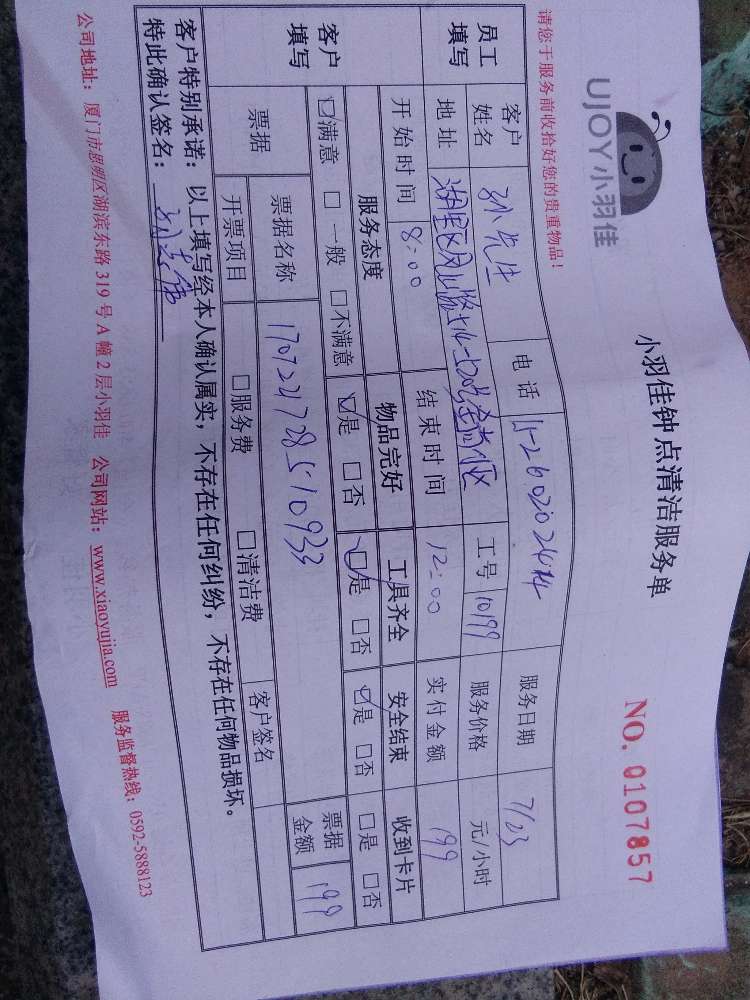 UJOY小羽佳
小羽佳钟点清洁服务单
NO. 0107857
请您于服务前收拾好您的贵重物品!
员工填写
客户姓名 孙先生 电话 服务日期 7/23
地址 工号 10199 服务价格 元/小时
开始时间 8:00 结束时间 12:00 实付金额 199
客户填写
服务态度 物品完好 工具齐全 安全结束 收到卡片
☑满意 □一般 □不满意 ☑是 □否 ☑是 □否 ☑是 □否 □是 □否
票据 票据名称 票据金额 199
开票项目 □服务费 □清洁费 客户签名
客户特别承诺:以上填写经本人确认属实,不存在任何纠纷,不存在任何物品损坏。
特此确认签名:
公司地址:厦门市思明区湖滨东路 319 号 A 幢 2 层小羽佳 公司网站:www.xiaoyujia.com 服务监督热线:0592-5888123